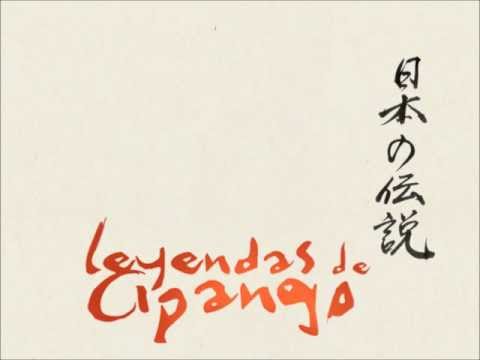 日本の伝説
leyendas de
Cipango